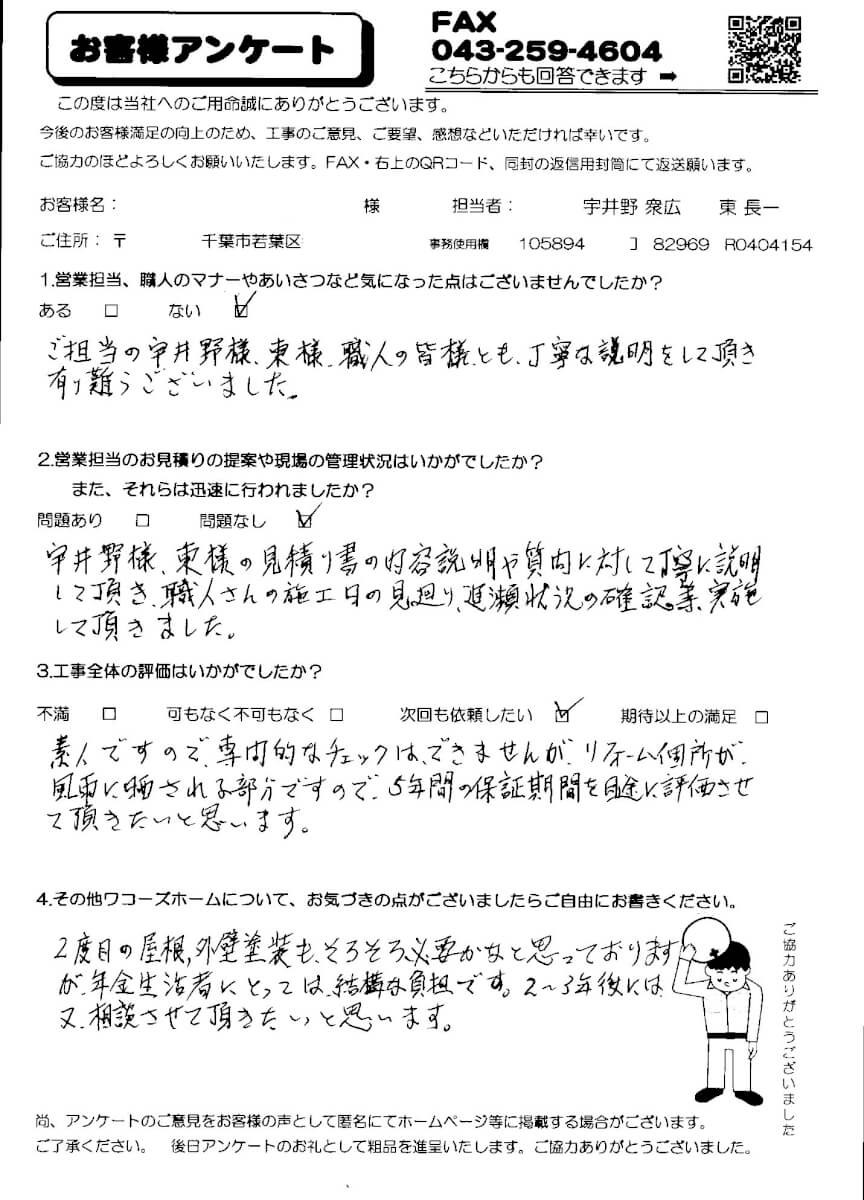 お客様アンケート
FAX
043-259-4604
こちらからも回答できます ➡
この度は当社へのご用命誠にありがとうございます。
今後のお客様満足の向上のため、工事のご意見、ご要望、感想などいただければ幸いです。
ご協力のほどよろしくお願いいたします。FAX・右上のQRコード、同封の返信用封筒にて返送願います。
お客様名： 様 担当者： 宇井野 衆広 東 長一
ご住所：〒 千葉市若葉区 事務使用欄 105894 J 82969 R0404154
1.営業担当、職人のマナーやあいさつなど気になった点はございませんでしたか？
ある □ ない ☑
ご担当の宇井野様、東様、職人の皆様とも、丁寧な説明をして頂き
有り難うございました。
2.営業担当のお見積りの提案や現場の管理状況はいかがでしたか？
また、それらは迅速に行われましたか？
問題あり □ 問題なし ☑
宇井野様、東様の見積り書の内容説明や質問に対して丁寧に説明
して頂き、職人さんの施工日の見廻り、進瀬状況の確認等、実施
して頂きました。
3.工事全体の評価はいかがでしたか？
不満 □ 可もなく不可もなく □ 次回も依頼したい ☑ 期待以上の満足 □
素人ですので、専門的なチェックは、できませんが、リフォーム個所が、
風雨に晒される部分ですので、5年間の保証期間を目途に評価させ
て頂きたいと思います。
4.その他ワコーズホームについて、お気づきの点がございましたらご自由にお書きください。
2度目の屋根,外壁塗装も、そろそろ必要かなと思っております
が、年金生活者にとっては、結構な負担です。2～3年後には、
又、相談させて頂きたいと思います。
ご協力ありがとうございました
尚、アンケートのご意見をお客様の声として匿名にてホームページ等に掲載する場合がございます。
ご了承ください。 後日アンケートのお礼として粗品を進呈いたします。ご協力ありがとうございました。